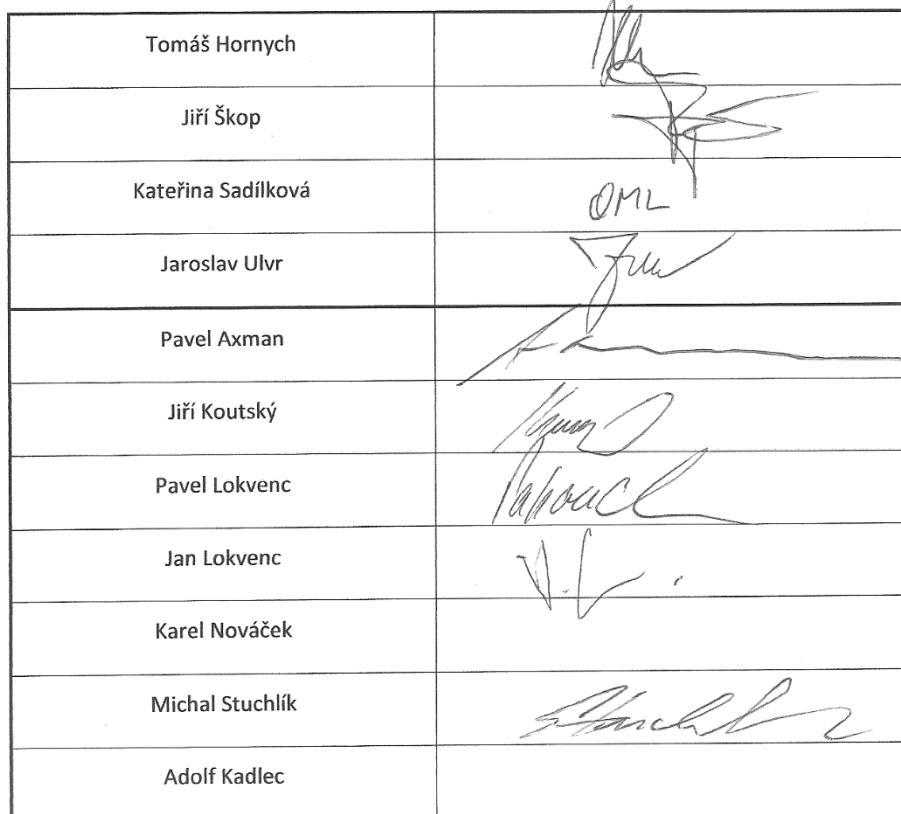 Tomáš Hornych
Jiří Škop
Kateřina Sadílková OML
Jaroslav Ulvr
Pavel Axman
Jiří Koutský
Pavel Lokvenc
Jan Lokvenc
Karel Nováček
Michal Stuchlík
Adolf Kadlec